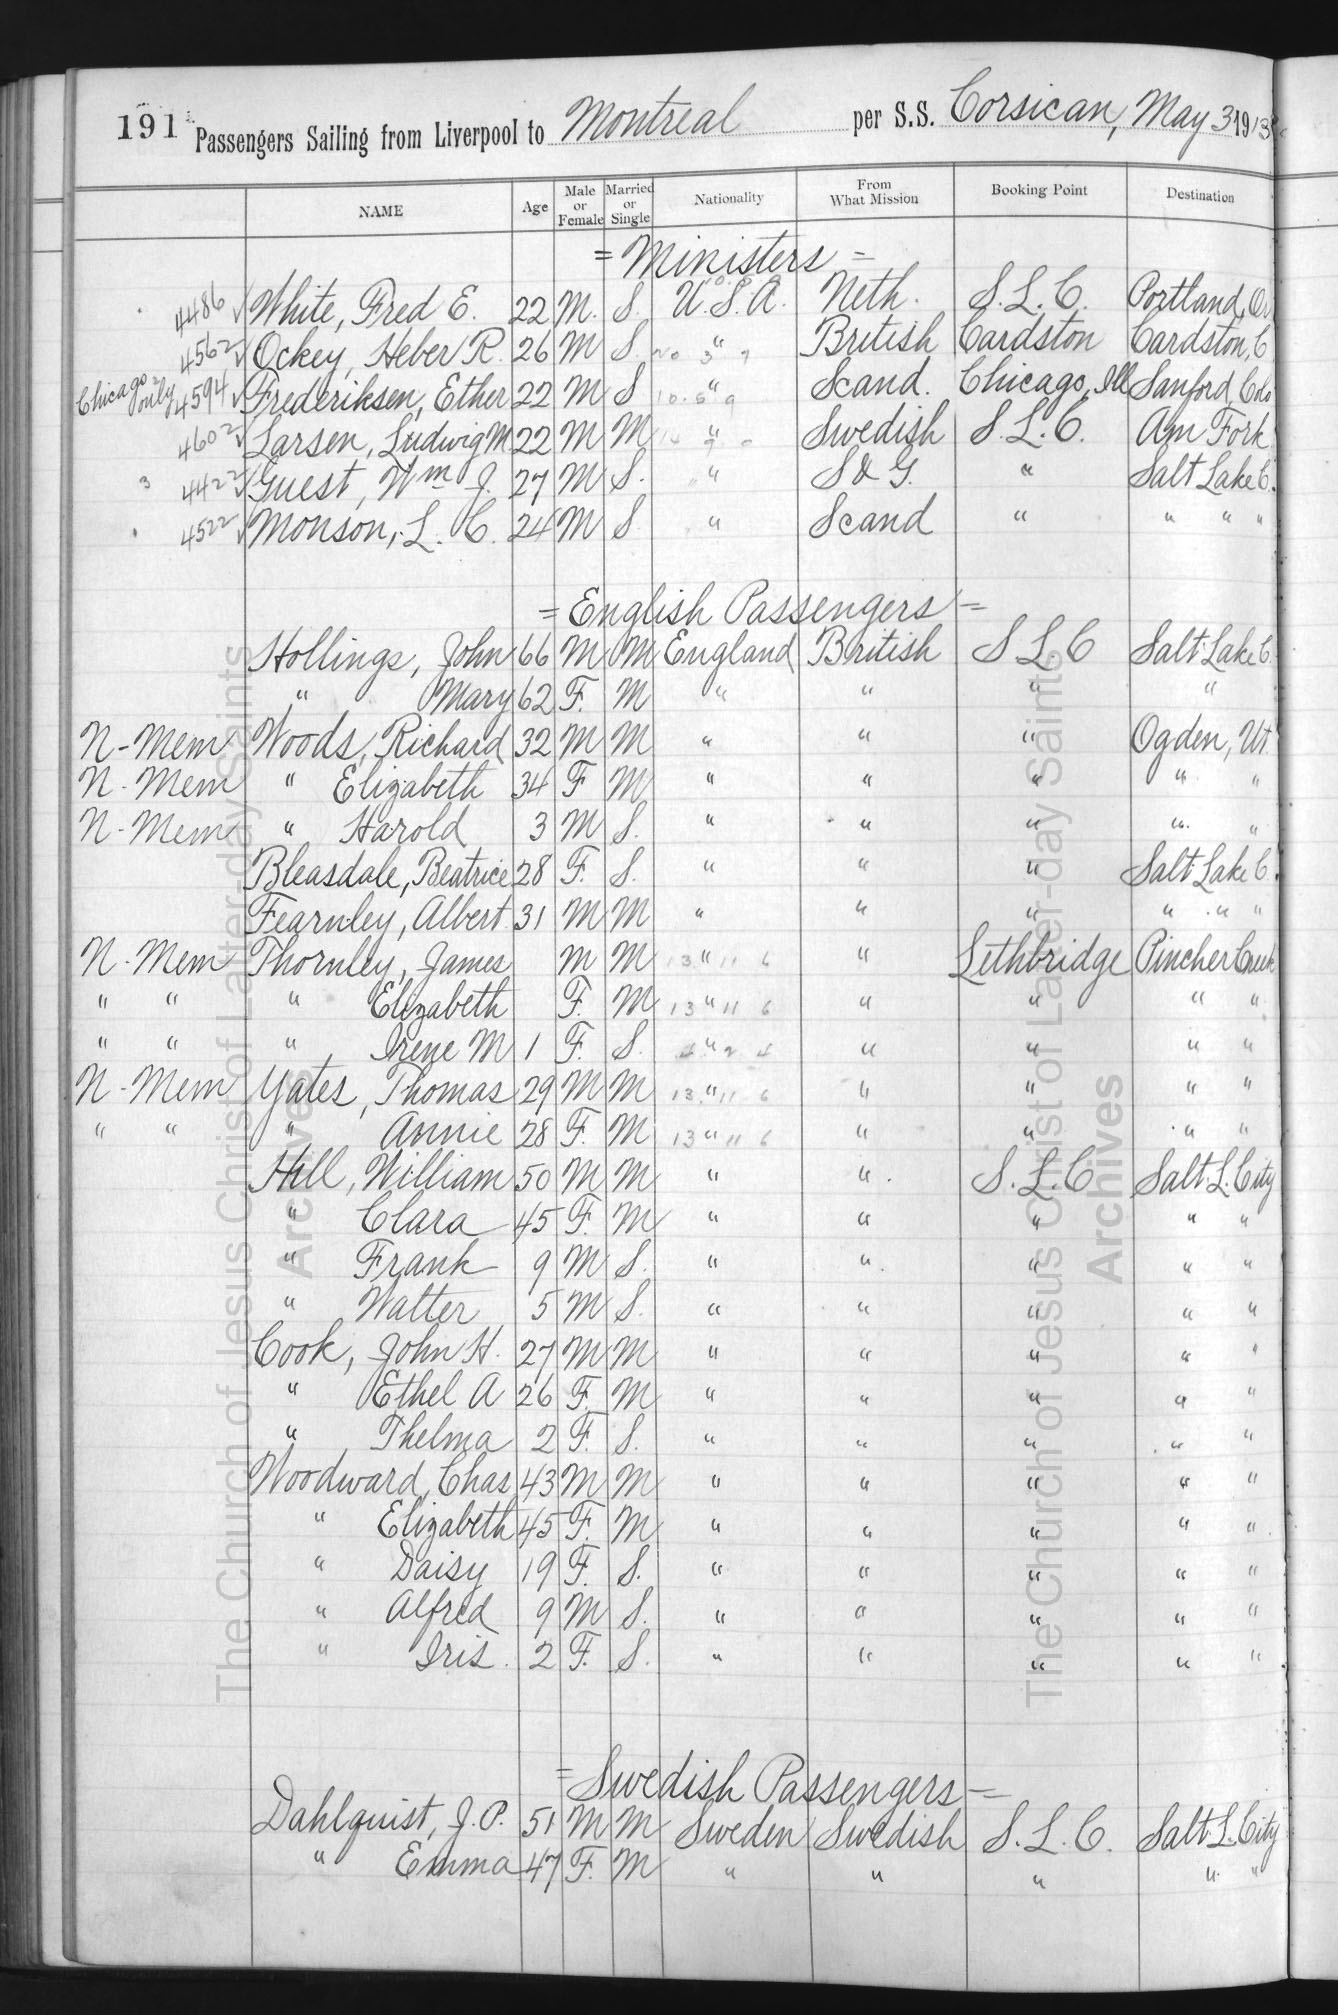 191 Passengers Sailing from Liverpool to Montreal per S.S. Corsican, May 3 1913
NAME Age Male or Female Married or Single Nationality From What Mission Booking Point Destination
= Ministers =
4486 White, Fred E. 22 M. S. U.S.A. Neth. S.L.C. Portland, Or
4562 Ockey, Heber R. 26 M S " British Cardston Cardston, C
Chicago only 4594 Frederiksen, Ether 22 M S " Scand. Chicago, Ill Sanford, Colo
4602 Larsen, Ludwig M 22 M M " Swedish S.L.C. Am Fork
3 4422 Guest, Wm J. 27 M S. " S & G. " Salt Lake C.
4522 Monson, L. C. 24 M S " Scand " " " "
= English Passengers =
Hollings, John 66 M M England British S L C Salt Lake C.
" Mary 62 F. M " " " "
N-Mem Woods, Richard 32 M M " " " Ogden, Ut.
N-Mem " Elizabeth 34 F M " " " " "
N-Mem " Harold 3 M S. " " " " "
Bleasdale, Beatrice 28 F. S. " " " Salt Lake C.
Fearnley, Albert 31 M M " " " " " "
N-Mem Thornley, James M M 13 " 11 6 " Lethbridge Pincher Creek
" " " Elizabeth F. M 13 " 11 6 " " " "
" " " Irene M 1 F. S. 4 " 2 4 " " " "
N-Mem Yates, Thomas 29 M M 13 " 11 6 " " " "
" " " Annie 28 F. M 13 " 11 6 " " " "
Hill, William 50 M M " " S.L.C Salt L. City
" Clara 45 F. M " " " " "
" Frank 9 M S. " " " " "
" Walter 5 M S. " " " " "
Cook, John H. 27 M M " " " " "
" Ethel A 26 F. M " " " " "
" Thelma 2 F. S. " " " " "
Woodward, Chas 43 M M " " " " "
" Elizabeth 45 F. M " " " " "
" Daisy 19 F. S. " " " " "
" Alfred 9 M S. " " " " "
" Iris. 2 F. S. " " " " "
= Swedish Passengers =
Dahlquist, J. P. 51 M M Sweden Swedish S. L. C. Salt L. City
" Emma 47 F. M " " " " "
The Church of Jesus Christ of Latter-day Saints
Archives
The Church of Jesus Christ of Latter-day Saints
Archives